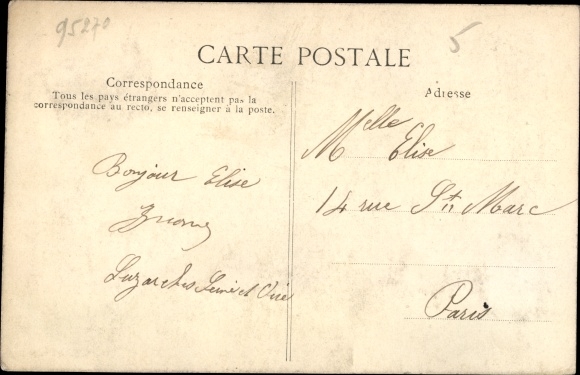 95270
5
CARTE POSTALE
Correspondance
Tous les pays étrangers n'acceptent pas la
correspondance au recto, se renseigner à la poste.
Bonjour Elise
Luzarches Seine et Oise
Adresse
Melle Elise
14 rue St Marc
Paris